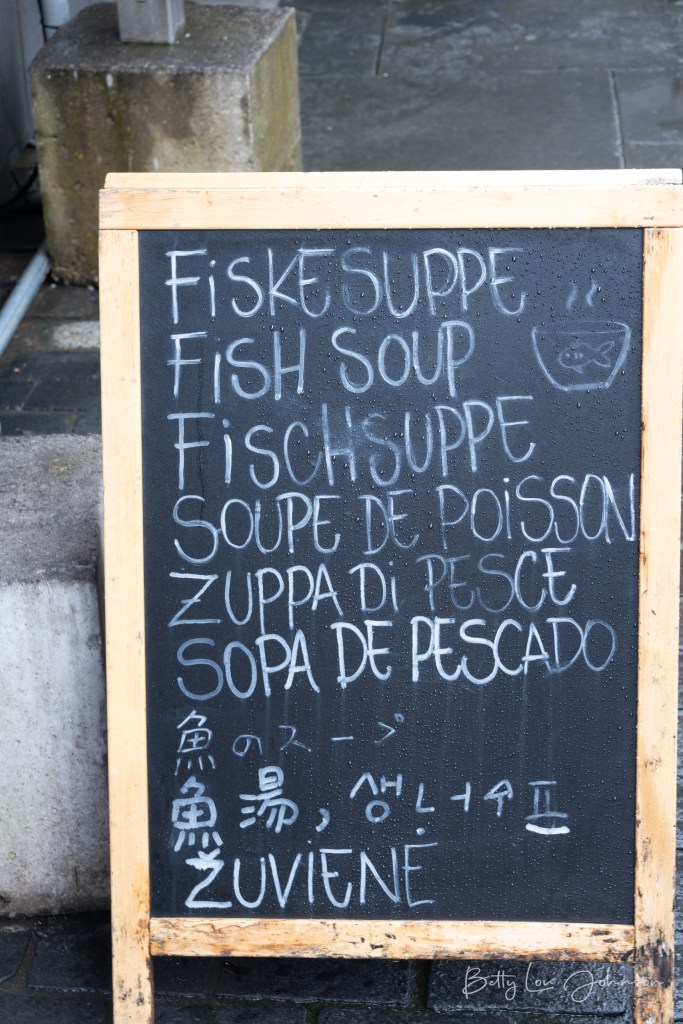 FiSKESUPPE
FiSH SOUP
FiSCHSUPPE
SOUPE DE POiSSON
ZUPPA Di PESCE
SOPA DE PESCADO
魚のスープ
魚湯, 생너수프
ŽUVIENĖ
Betty Love Johnson